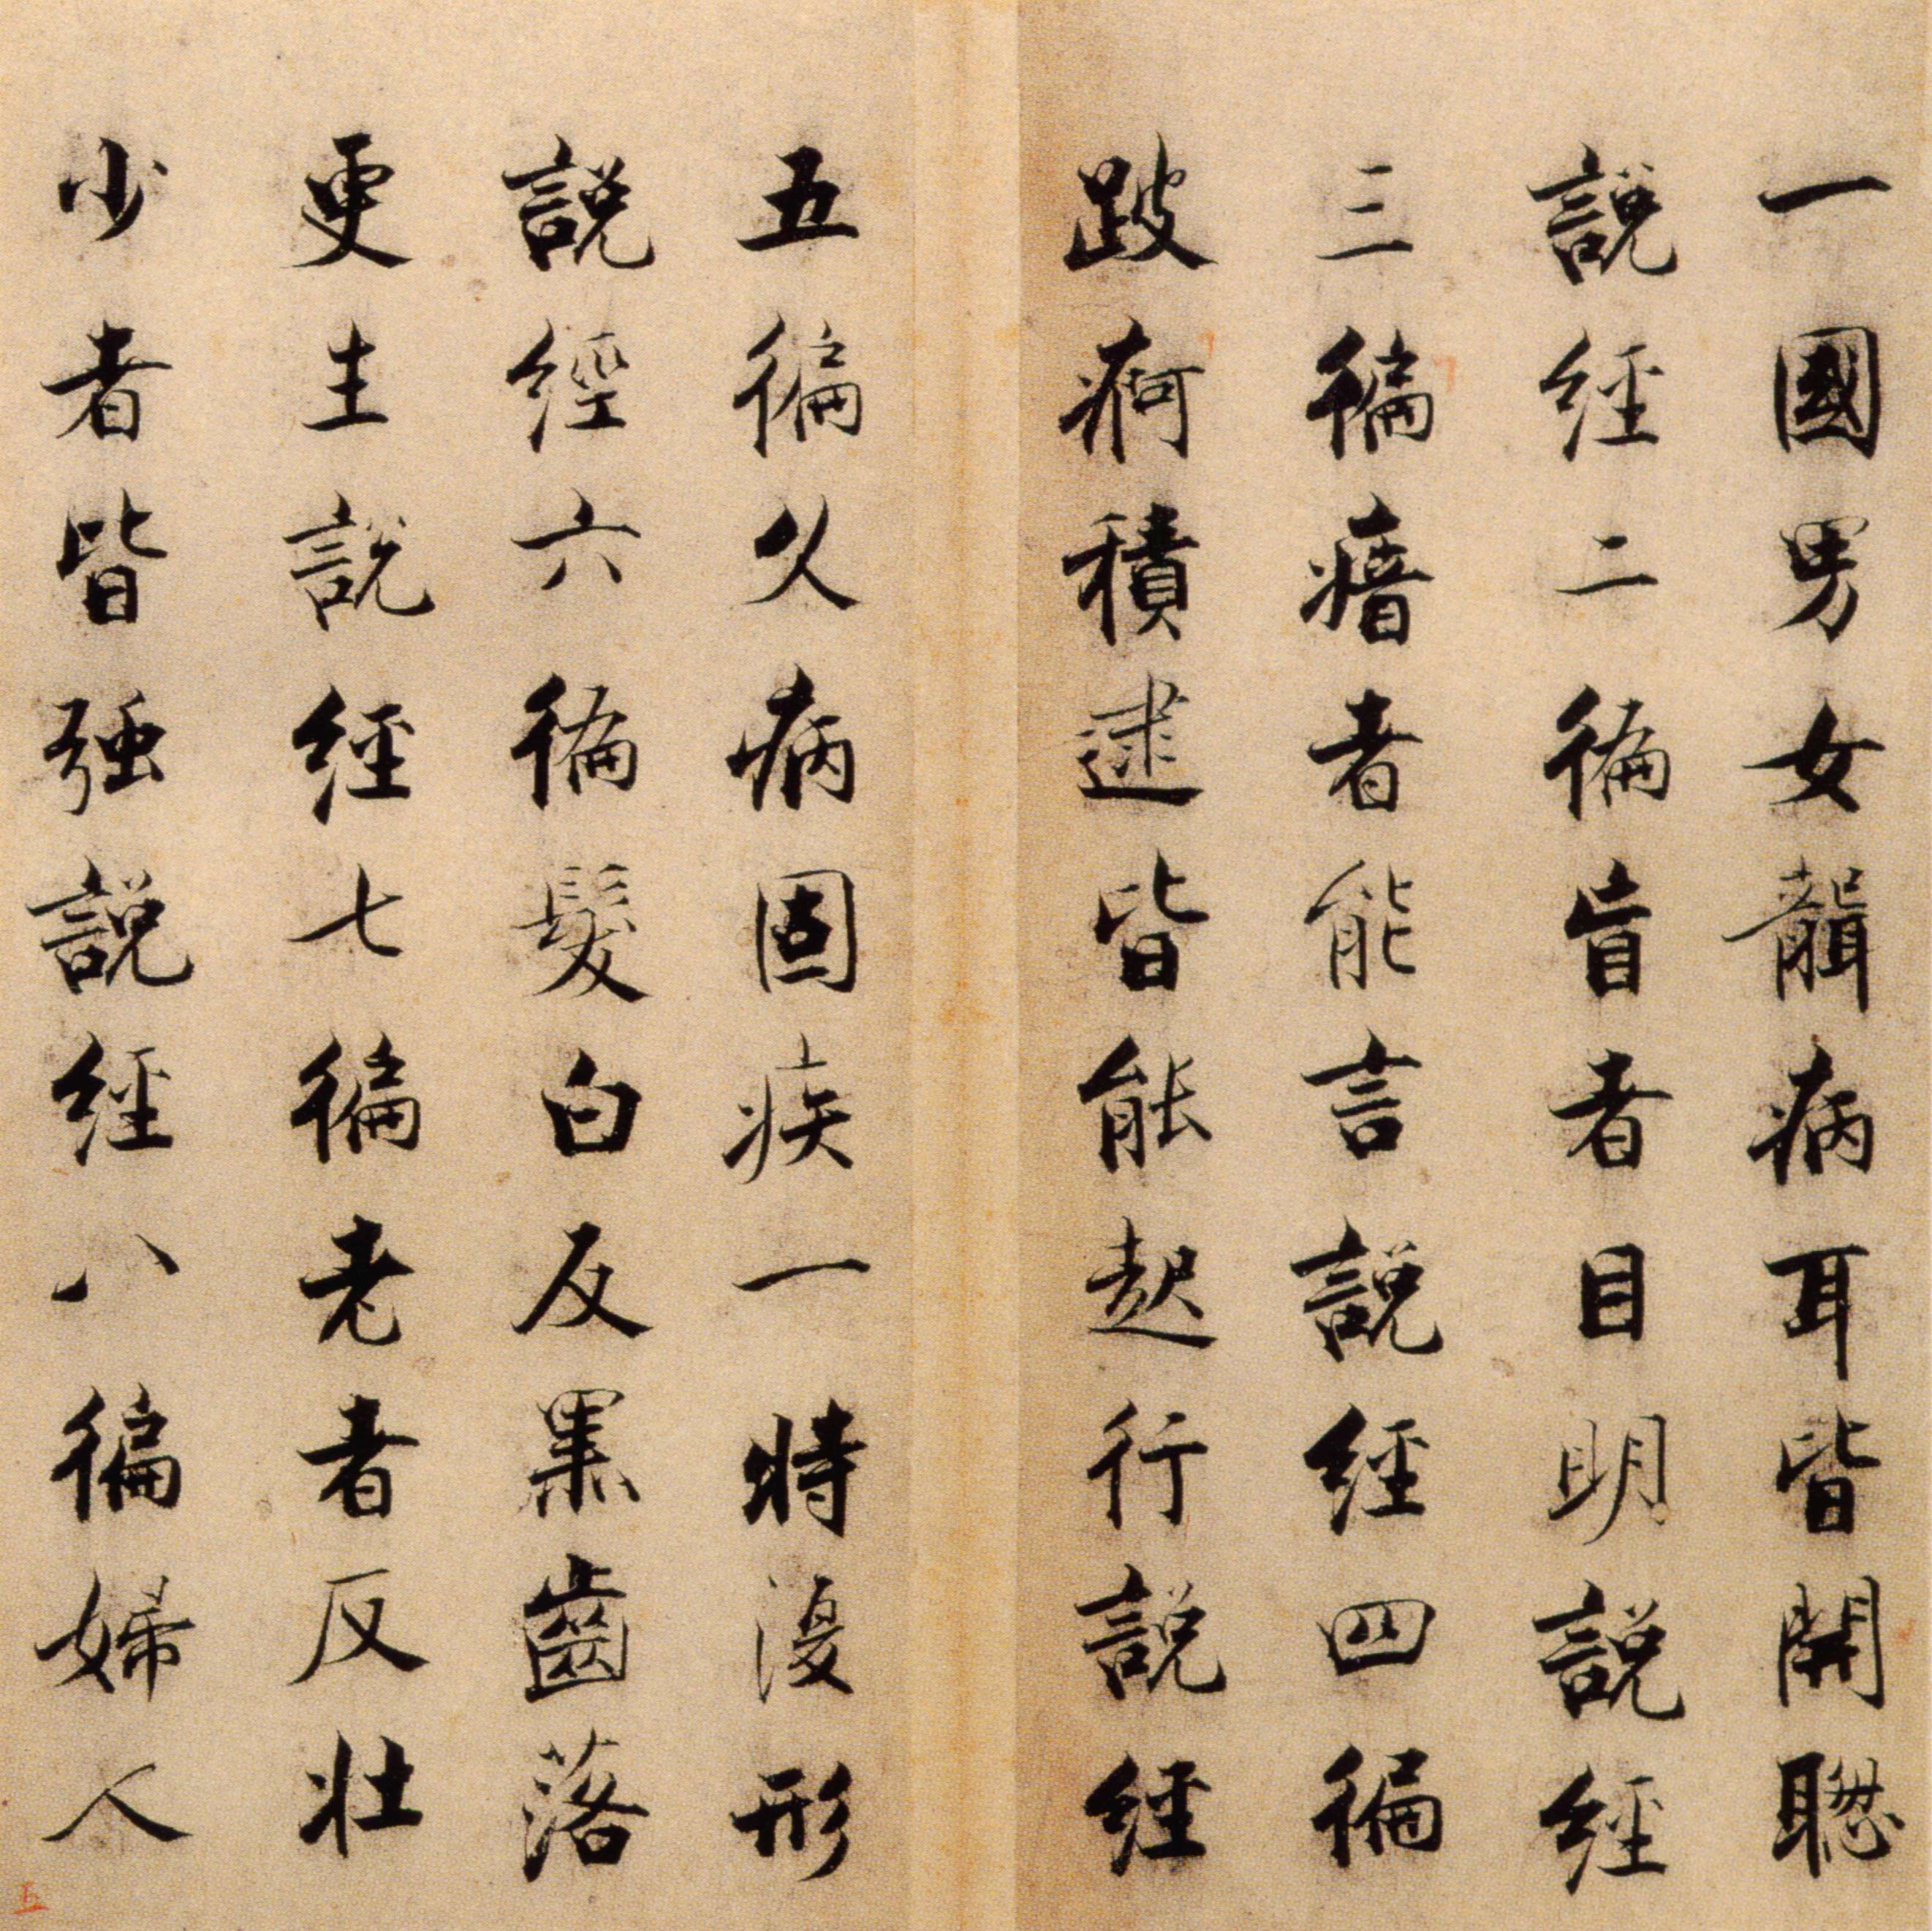 一國男女聾病耳皆開聰
說經二徧盲者目明說經
三徧瘖者能言說經四徧
跛痾積逮皆能起行說經
五徧久病固疾一時復形
說經六徧髮白反黑齒落
更生說經七徧老者反壯
少者皆強說經八徧婦人
五